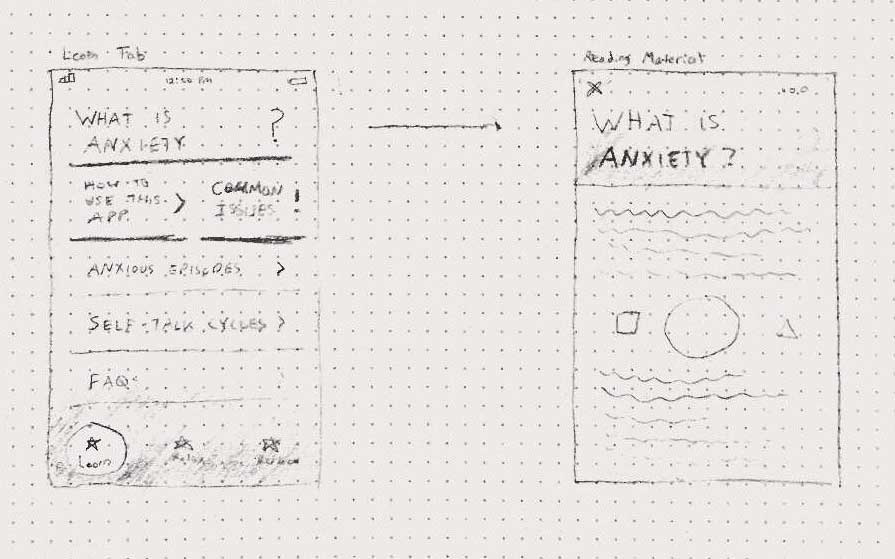 Learn Tab
12:50 PM
WHAT IS
ANXIETY
?
HOW TO
USE THIS
APP
>
COMMON
ISSUES
!
ANXIOUS EPISODES >
SELF-TALK CYCLES >
FAQ
Learn
Reading Material
X
WHAT IS
ANXIETY?